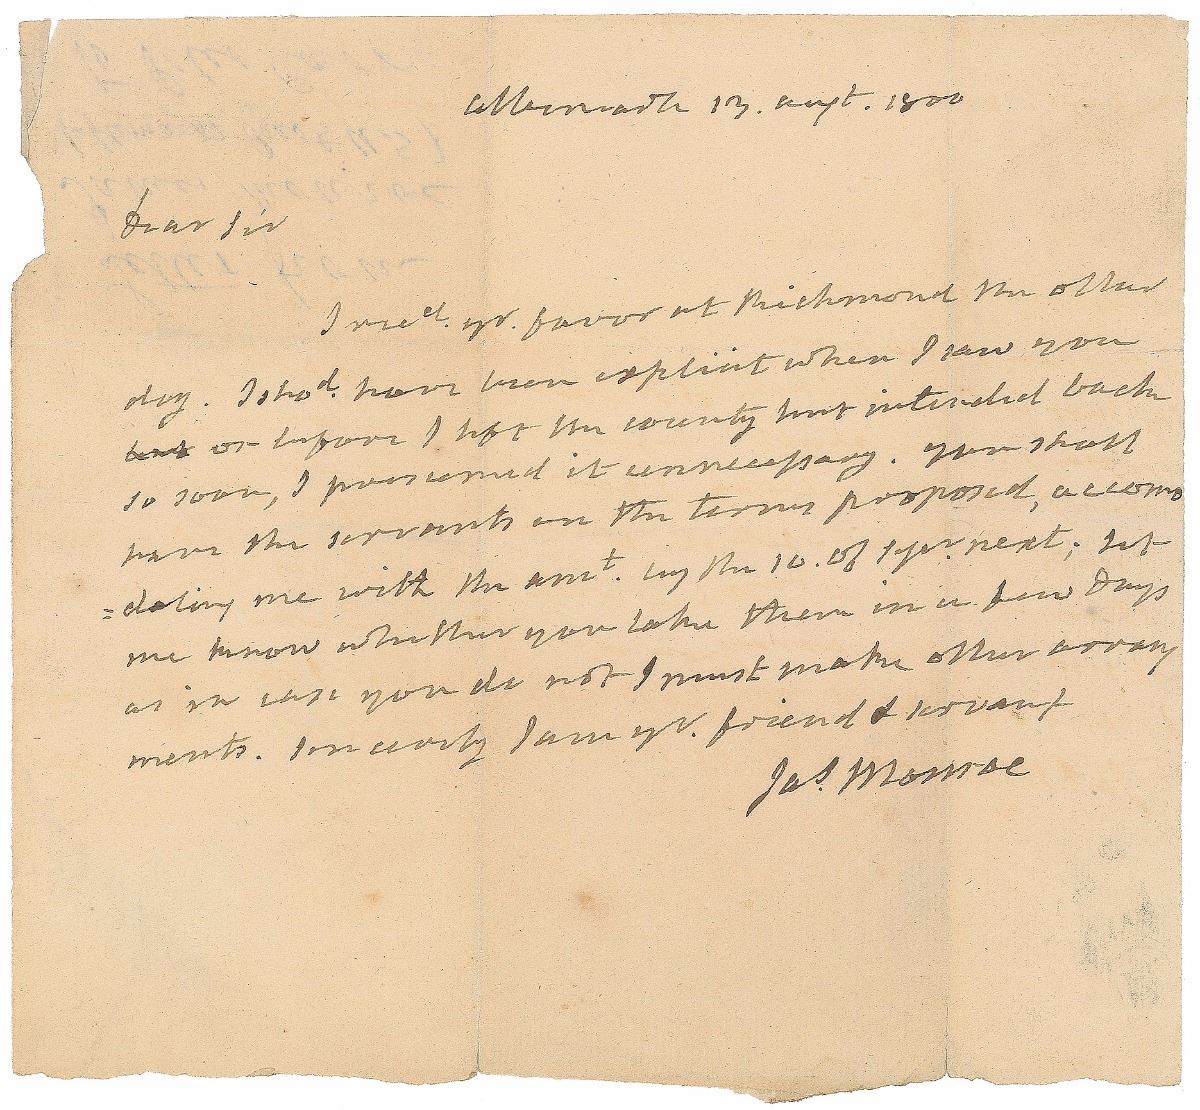 Albemarle 13. augt. 1800
Dear Sir
I recd. yr. favor at Richmond the other
day. I shod. have been explicit when I saw you
but or before I left the county but intended back
so soon, I presumed it unnecessary. you shall
have the servants on the terms proposed, accomo
=dating me with the amt. by the 10. of Sepr. next; let
me know whether you take them in a few days
as in case you do not I must make other arrang
ments. sincerely I am yr. friend & servant
Jas. Monroe